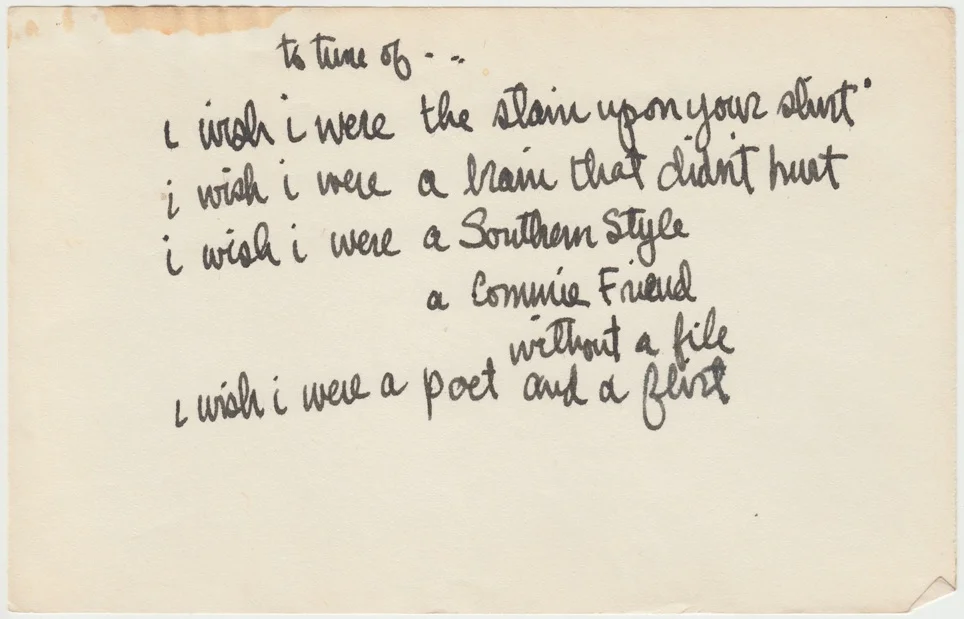 to tune of - --
i wish i were the stain upon your shirt"
i wish i were a brain that didn't hurt
i wish i were a Southern Style
a Commie Friend
without a file
i wish i were a poet and a flirt